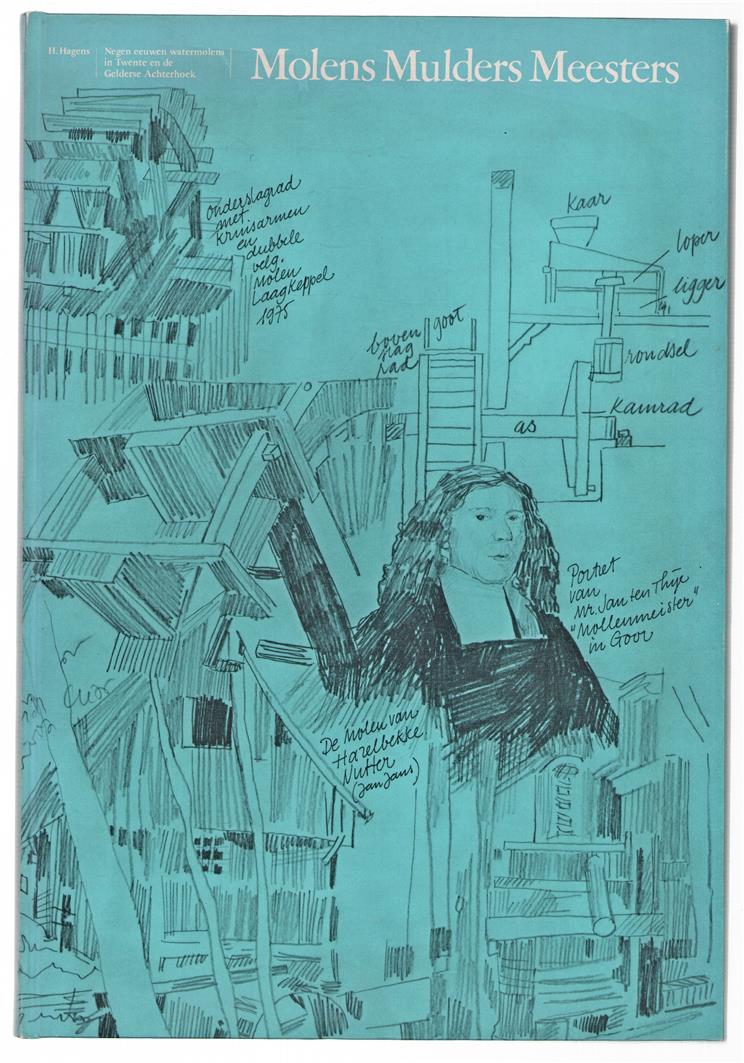 H. Hagens
Negen eeuwen watermolens
in Twente en de
Gelderse Achterhoek
Molens Mulders Meesters
onderslagrad
met
kruisarmen
en
dubbele
velg.
Molen
Laagkeppel
1975
kaar
loper
ligger
boven
slag
rad
goot
rondsel
kamrad
as
Portret
van
Mr. Jan ten Thije
"Mollenmeister"
in Goor
De Molen van
Hazelbekke
Nutter
(Jan Jans)